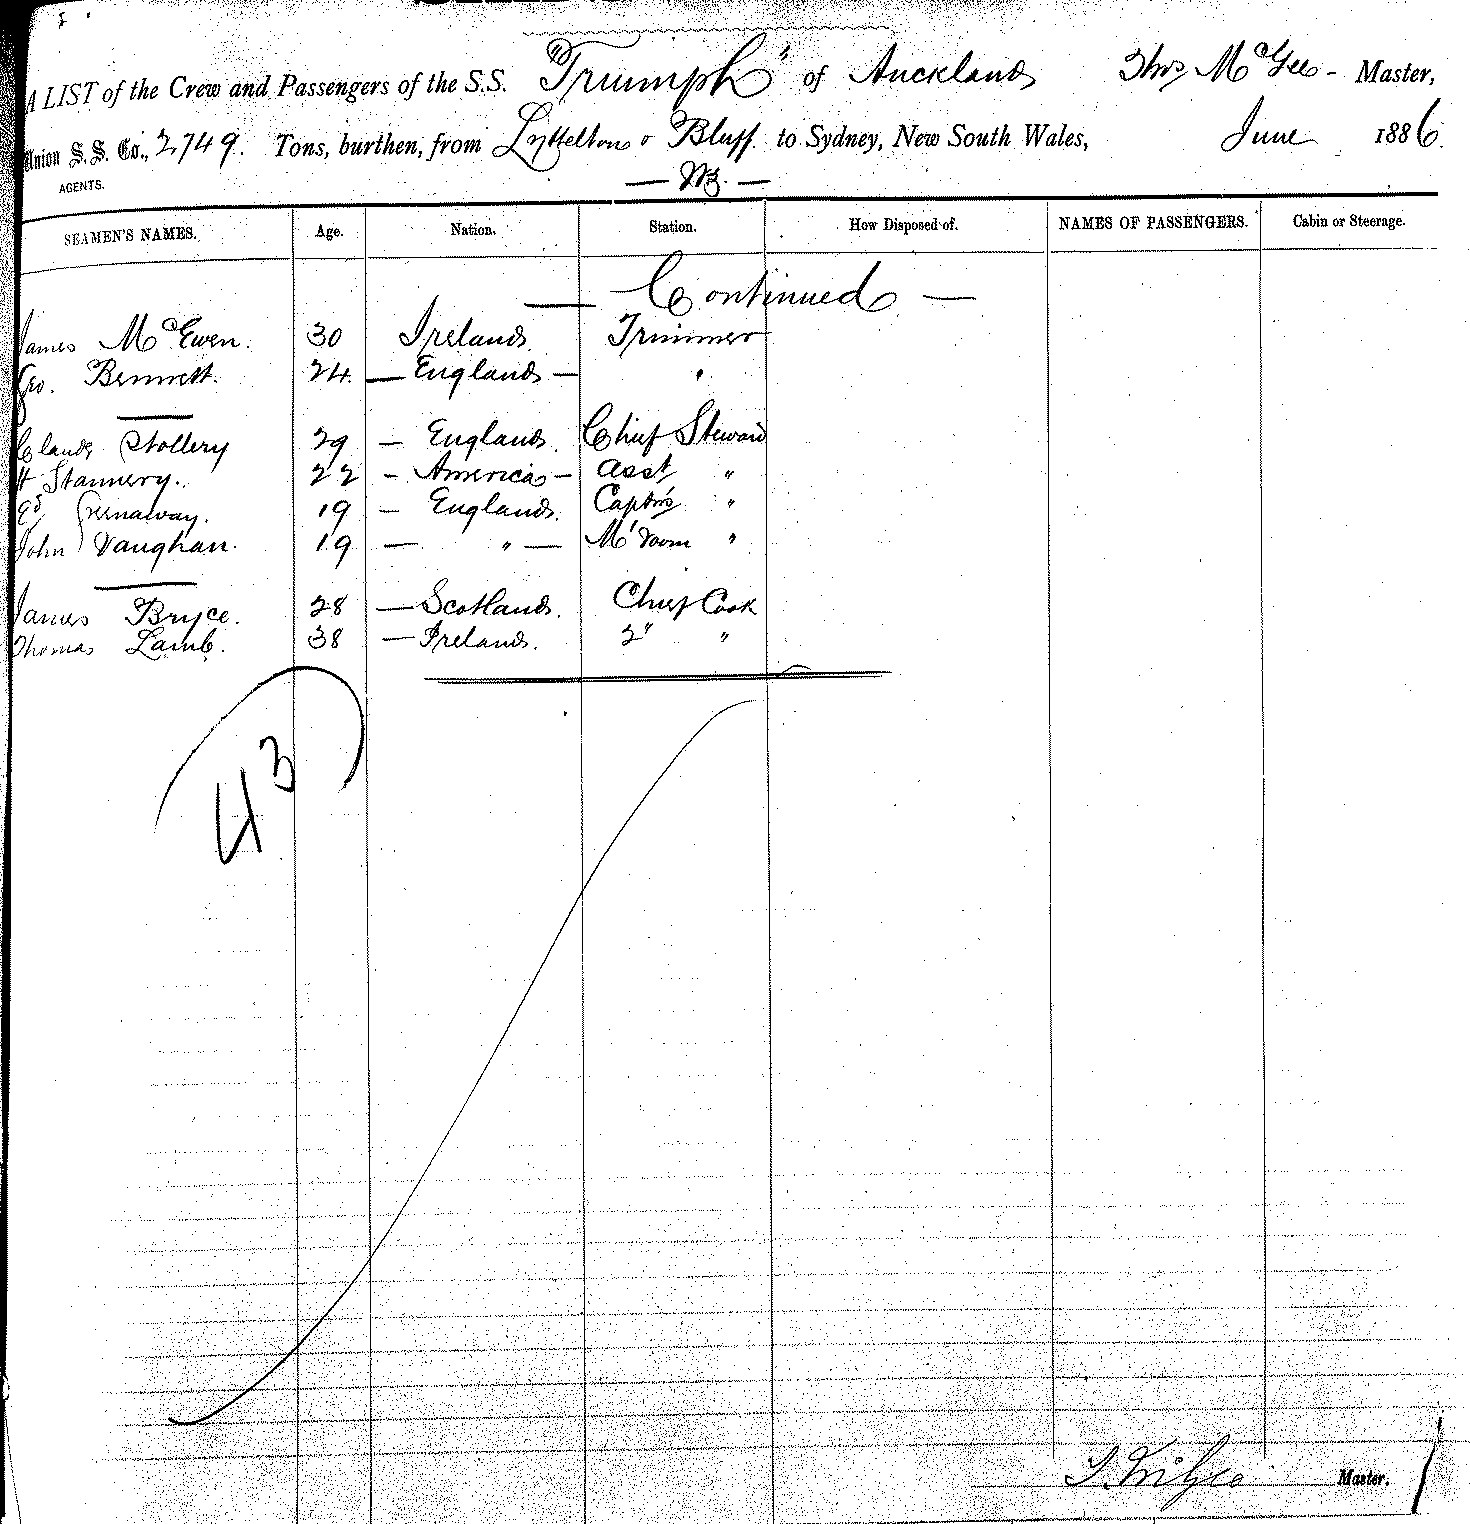 A LIST of the Crew and Passengers of the S.S. "Triumph" of Auckland Thos McGee - Master,
Union S. S. Co., 2749. Tons, burthen, from Lyttelton & Bluff to Sydney, New South Wales, June 1886.
AGENTS.
SEAMEN'S NAMES. Age. Nation. Station. How Disposed of. NAMES OF PASSENGERS. Cabin or Steerage.
— Continued —
James McEwen. 30 Ireland. Trimmer
Geo. Bennett. 24. — England — "
Stollery 29 — England. Chief Steward
H Stannery. 22 — America — Asst "
Ed Greenaway. 19 — England. Capt's "
John Vaughan. 19 — " — M'room "
James Bryce. 28 — Scotland. Chief Cook
Thomas Lamb. 38 — Ireland. 2" "
43
Master.